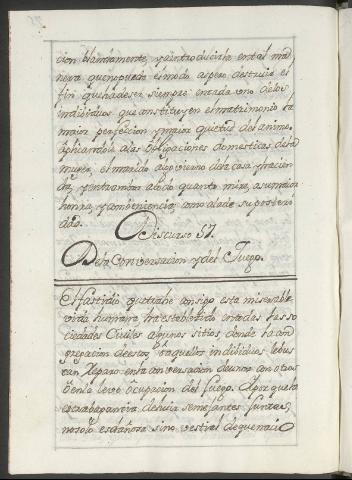 cion blandamente, y aintroducirla ental ma
nera quenopueda elmodo aspero destruir el
fin quehadeser siempre encada uno delos
individuos que constituyen elmatrimonio la
maior perfeccion y maior quietud del animo,
aplicandola alas obligaciones domesticas dela
muger, elmarido algovierno dela casa, y hacien
da, y entrambos atodo quanto mire, asumaior
honra, y combeniencia, como alade suposteri
dad.
Discurso 57.
Dela Conversacion y del Juego.
El fastidio quetrahe consigo esta miserable
vida humana ha establecido entodas las so
ciedades Civiles algunos sitios, donde la con
gregacion deestos, ò aquellos individuos lebus
can reparo enla conversacion deunos con otros
ò enla leve ocupacion del Juego. A por que la
deluia semejantes Juntas,
nosolo esdañosa sino vestial